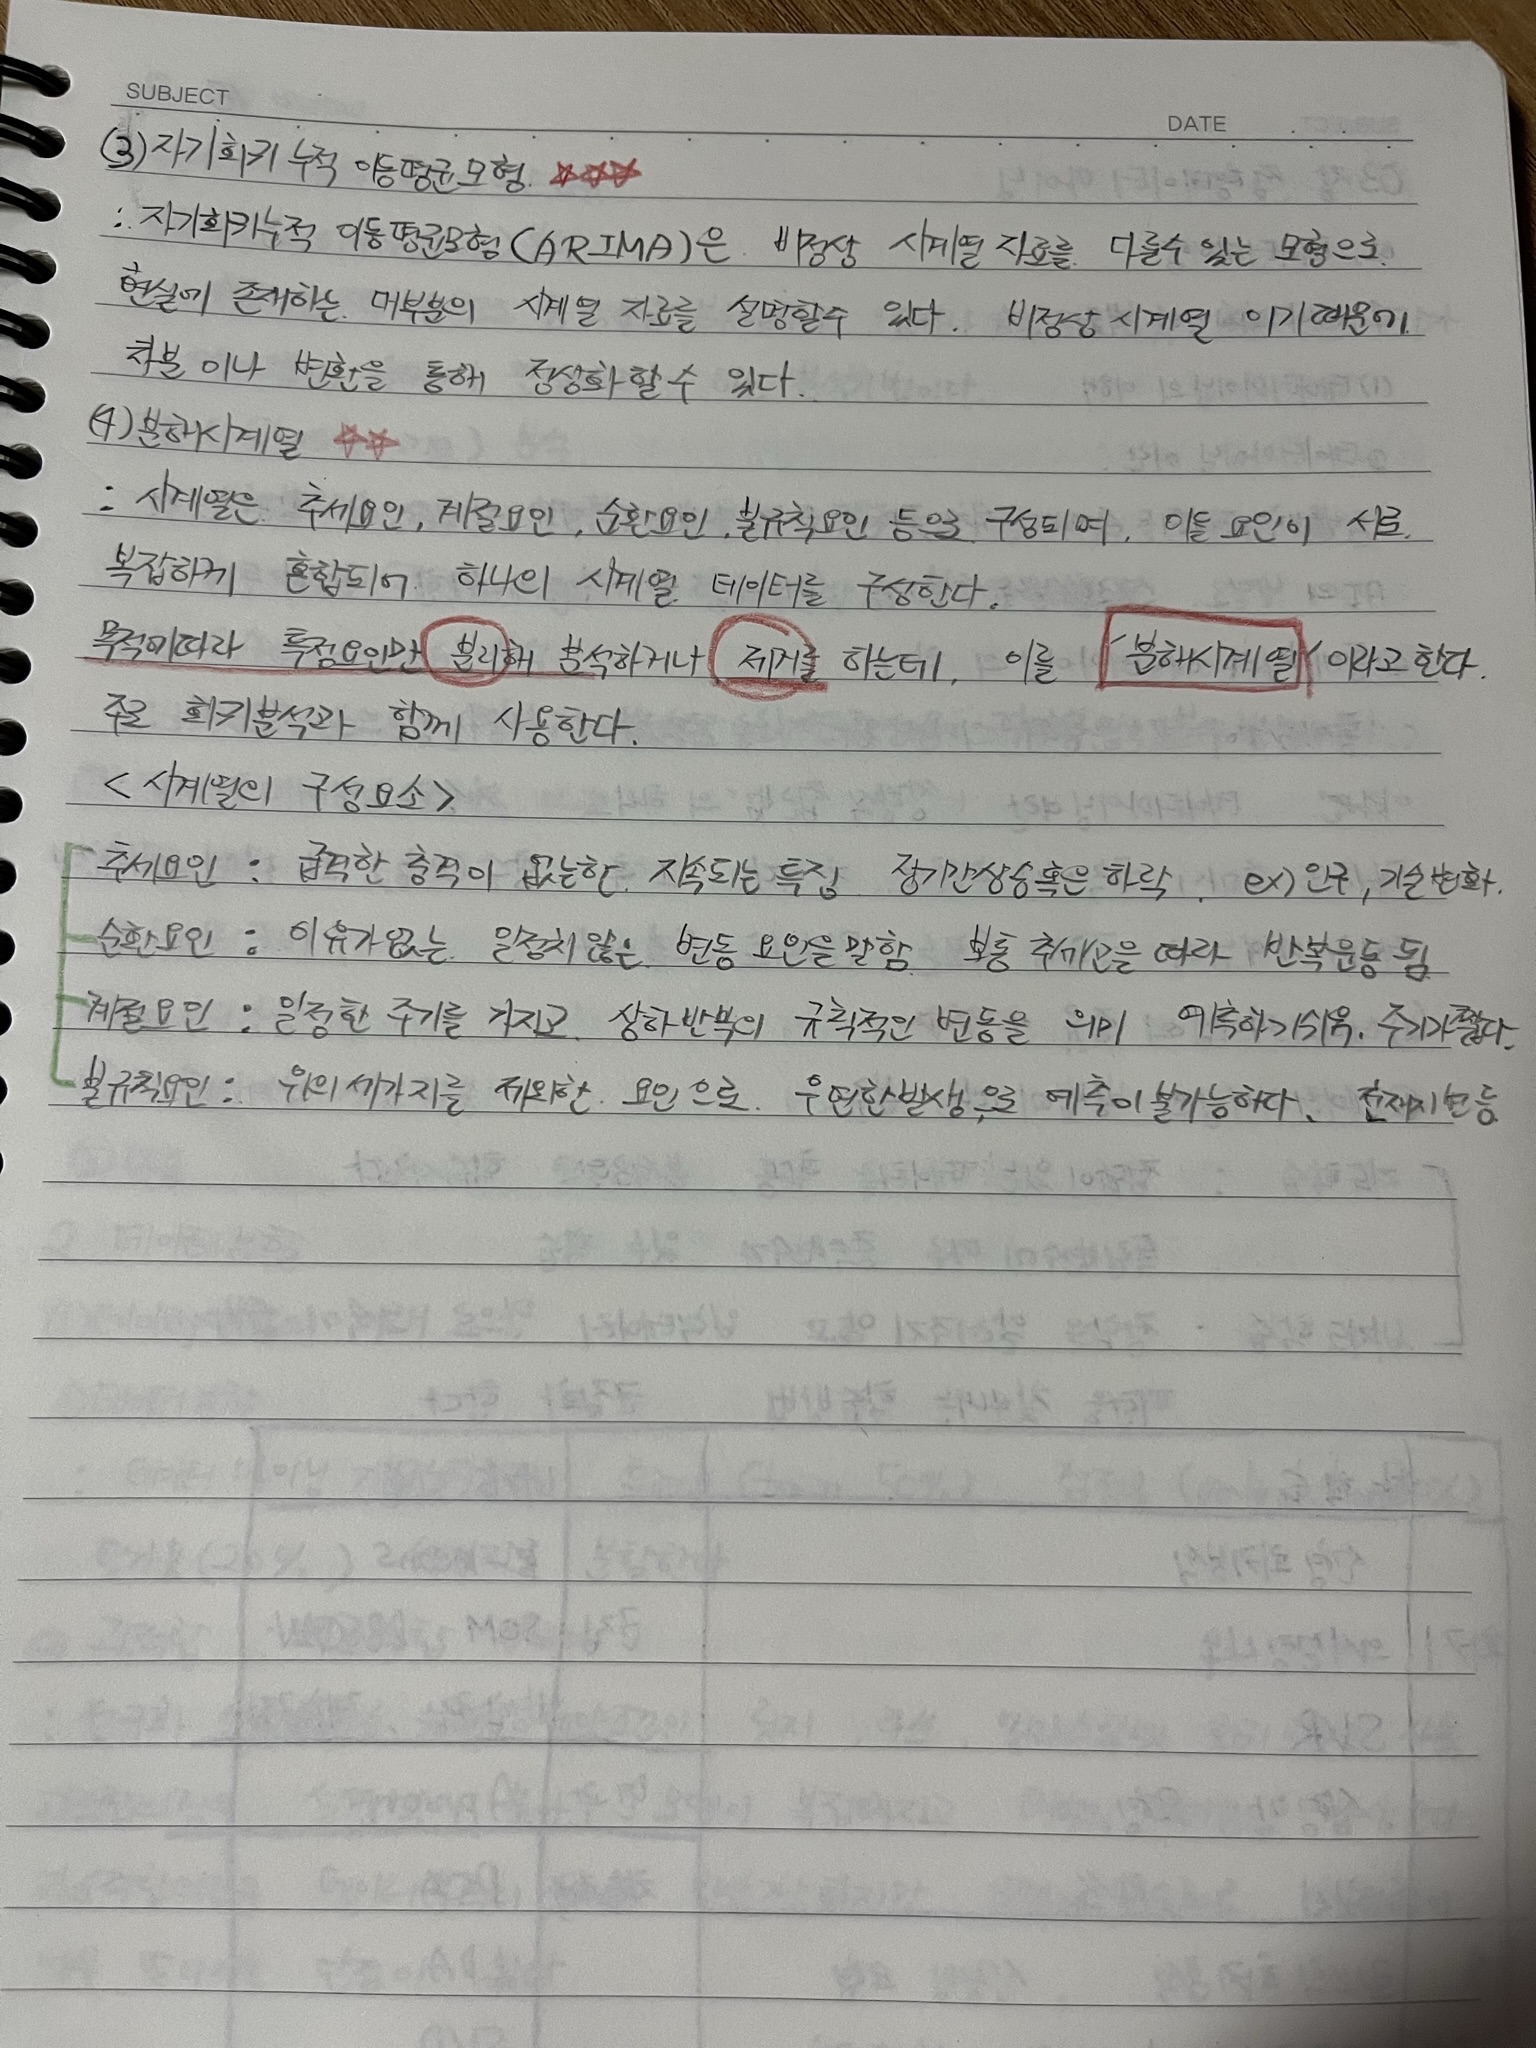 SUBJECT
DATE
(3) 자기회귀 누적 이동평균모형 ☆☆☆
: 자기회귀누적 이동평균모형(ARIMA)은 비정상 시계열 자료를 다룰수 있는 모형으로
현실에 존재하는 대부분의 시계열 자료를 설명할수 있다. 비정상 시계열 이기때문에
차분이나 변환을 통해 정상화 할 수 있다.
(4) 분해시계열 ☆☆
: 시계열은 추세요인, 계절요인, 순환요인, 불규칙요인 등으로 구성되며, 이들 요인이 서로
복잡하게 혼합되어 하나의 시계열 데이터를 구성한다.
목적에따라 특정요인만 분리해 분석하거나 제거를 하는데, 이를 '분해시계열' 이라고 한다.
주로 회귀분석과 함께 사용한다.
<시계열의 구성요소>
추세요인 : 급격한 충격이 없는한 지속되는 특징 장기간상승혹은 하락. ex) 인구, 기술변화.
순환요인 : 이유가없는 일정치 않은 변동 요인을 말함 보통 추세선을 따라 반복운동 됨
계절요인 : 일정한 주기를 가지고 상하반복의 규칙적인 변동을 의미 예측하기쉬움. 주기가짧다.
불규칙요인 : 위의 세가지를 제외한 요인으로 우연한발생으로 예측이 불가능하다. 천재지변 등